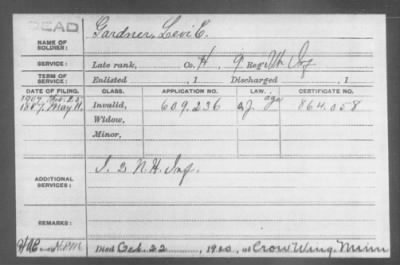 DEAD
NAME OF SOLDIER: Gardner, Levi C.
SERVICE: Late rank, Co. H, 9 Reg't Inf
TERM OF SERVICE: Enlisted , 1 Discharged , 1
DATE OF FILING. CLASS. APPLICATION NO. LAW. CERTIFICATE NO.
1907
Invalid, 609.236 age 864.058
Widow,
Minor,
ADDITIONAL SERVICES: I. 2 N.H. Inf.
REMARKS:
Died 22, 1920, at Crow Wing, Minn